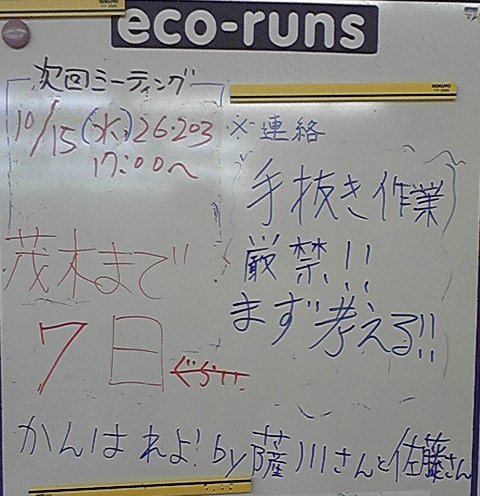 eco-runs
次回ミーティング
10/15(水)26-203
17:00〜
※連絡
手抜き作業
厳禁!!
まず考える!!
茂木まで
7日ぐらい
かんばれよ! by 薩川さんと佐藤さん